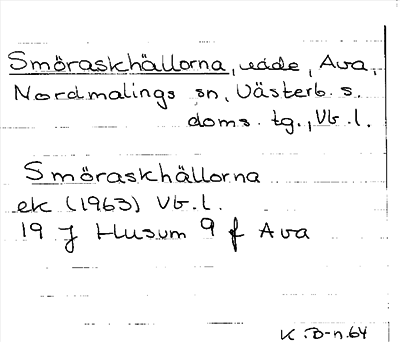 Smöraskhällorna, udde, Ava,
Nordmalings sn, Västerb. s.
doms. tg., Vb. l.
Smöraskhällorna
ek (1963) Vb. l.
19 J Husum 9 f Ava
K. B-n. 64